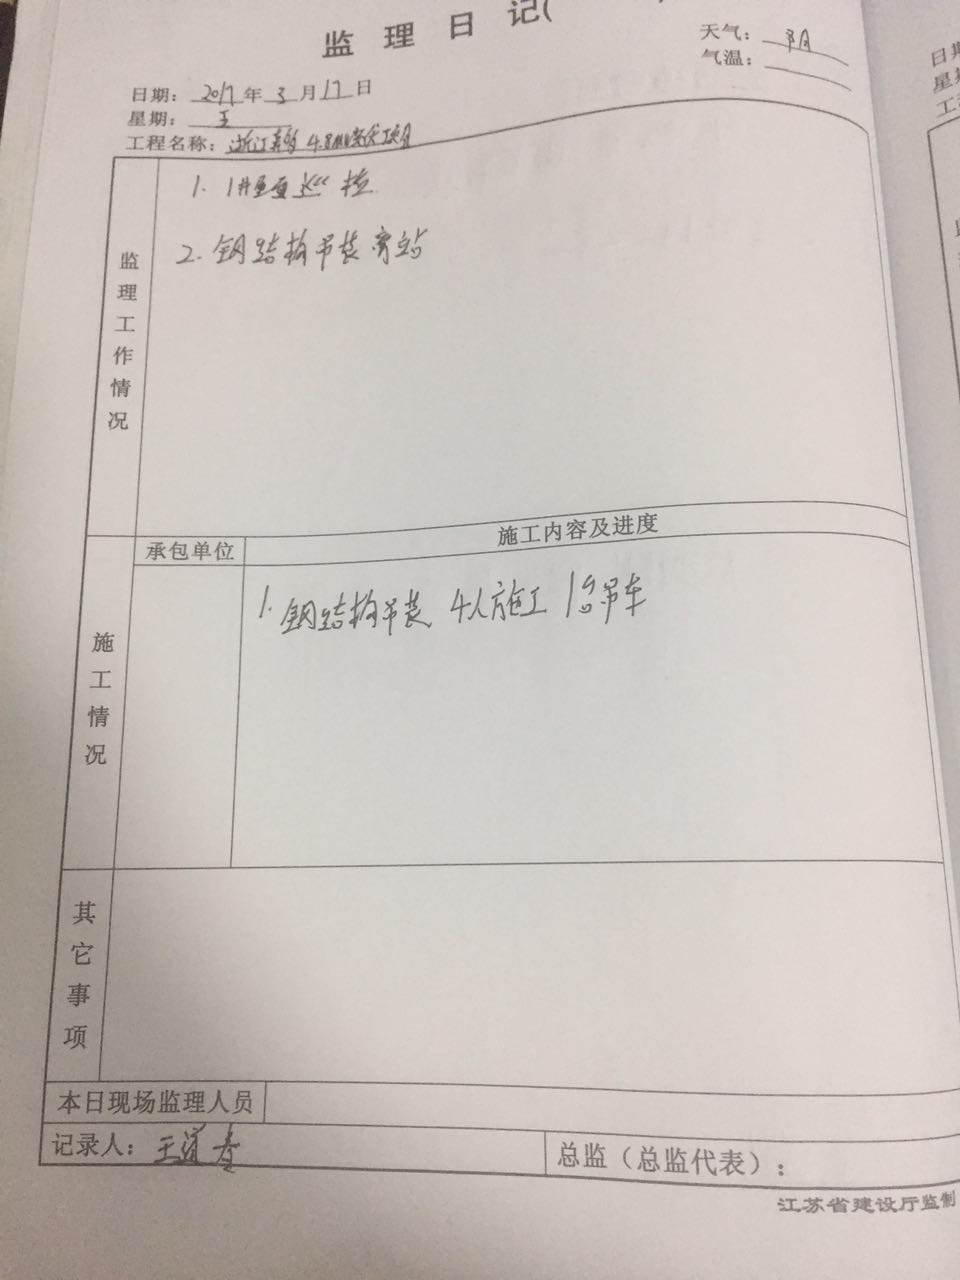 监理日记(
天气：阴
气温：
日期：2017年3月17日
星期：五
工程名称：浙江 4.8MW 项目
1. 质量巡检
2. 钢结构吊装旁站
监理工作情况
承包单位
施工内容及进度
施工情况
1. 钢结构吊装 4人施工 1台吊车
其它事项
本日现场监理人员
记录人：王道
总监（总监代表）：
江苏省建设厅监制